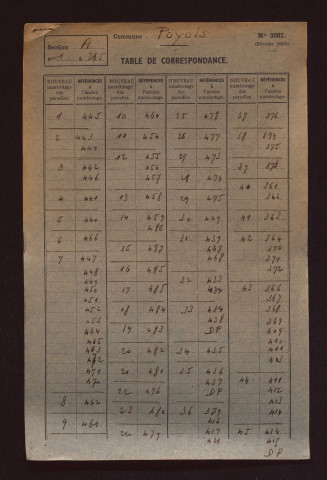 Section A
Commune Poyols
N° 3087.
TABLE DE CORRESPONDANCE.
NOUVEAU numérotage des parcelles.
RÉFÉRENCES à l'ancien numérotage.
NOUVEAU numérotage des parcelles.
RÉFÉRENCES à l'ancien numérotage.
NOUVEAU numérotage des parcelles.
RÉFÉRENCES à l'ancien numérotage.
NOUVEAU numérotage des parcelles.
RÉFÉRENCES à l'ancien numérotage.
1 445
2 443
444
3 442
446
4 441
5 440
6 466
7 447
448
449
450
451
452
453
464
465
463
462
471
470
8 462
9 461
10 460
11 454
12 455
456
457
13 458
14 459
486
15 487
16 485
17 485
18 484
19 483
20 482
21 481
22 476
23 480
479
25 478
26 477
27 473
28 474
29 475
30 449
31 439
467
468
32 433
434
33 434
438
DP
34 435
35 436
437
36 379
416
417
421
37 376
38 374
375
39 373
40 361
362
41 363
42 364
370
371
372
43 366
367
368
369
409
410
411
403
44 411
412
413
414
45 414
415
DP